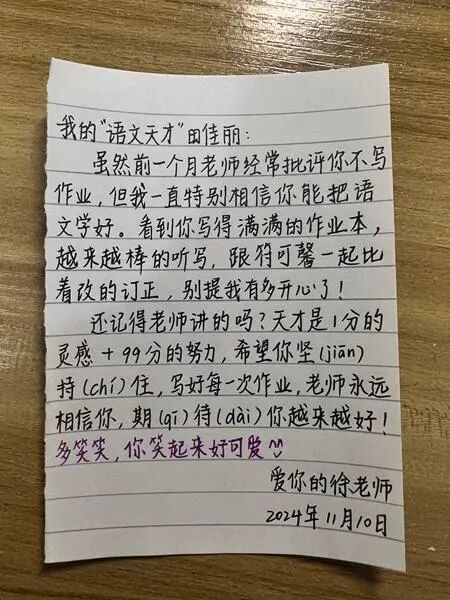 我的“语文天才”田佳丽：
虽然前一个月老师经常批评你不写
作业，但我一直特别相信你能把语
文学好。看到你写得满满的作业本，
越来越棒的听写，跟符可馨一起比
着改的订正，别提我有多开心了！
还记得老师讲的吗？天才是1分的
灵感+99分的努力，希望你坚(jiān)
持(chí)住，写好每一次作业，老师永远
相信你，期(qī)待(dài)你越来越好！
多笑笑，你笑起来好可爱
爱你的徐老师
2024年11月10日